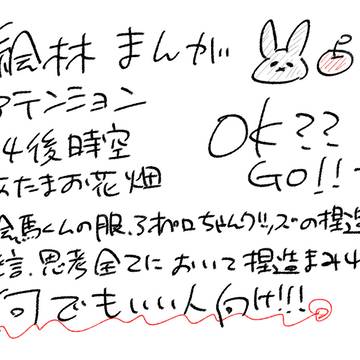 絵林 まんが
アテンション
4後時空
あたまお花畑
OK??
GO!!
絵馬くんの服、ろボロちゃんグッズの捏造
言、思考全てにおいて捏造まみれ
何でもいい人向け!!!